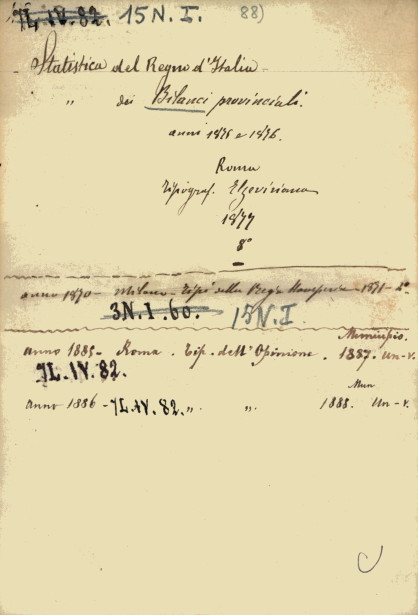 7L.IV.82. 15 N. I. 88)
Statistica del Regno d'Italia
" dei Bilanci provinciali.
anni 1875 e 1876.
Roma
Tipograf. Elzeviriana
1877
8°
anno 1870 - Milano - Tipi della Regia Stamperia - 1871 -
3N.I.60. 15 N. I
Municipio.
anno 1885 - Roma. Tip. dell'Opinione. 1887. un-v.
7L.IV.82.
Mun
anno 1886 - 7L.IV.82. " " 1888. Un-v.